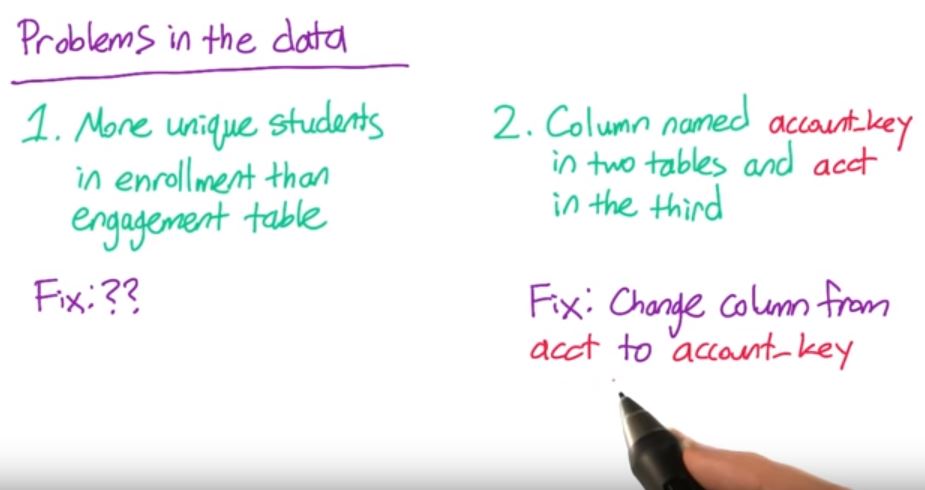 Problems in the data
1. More unique students
in enrollment than
engagement table
Fix: ??
2. Column named account_key
in two tables and acct
in the third
Fix: Change column from
acct to account_key